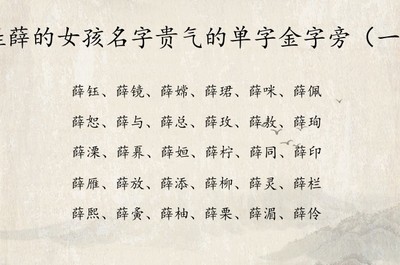 姓薛的女孩名字贵气的单字金字旁（一
薛钰、薛镜、薛嫦、薛珺、薛咪、薛佩
薛恕、薛与、薛总、薛玫、薛敖、薛珣
薛溧、薛奡、薛姮、薛柠、薛同、薛印
薛雁、薛放、薛添、薛柳、薛灵、薛栏
薛熙、薛夤、薛柚、薛栗、薛湄、薛伶